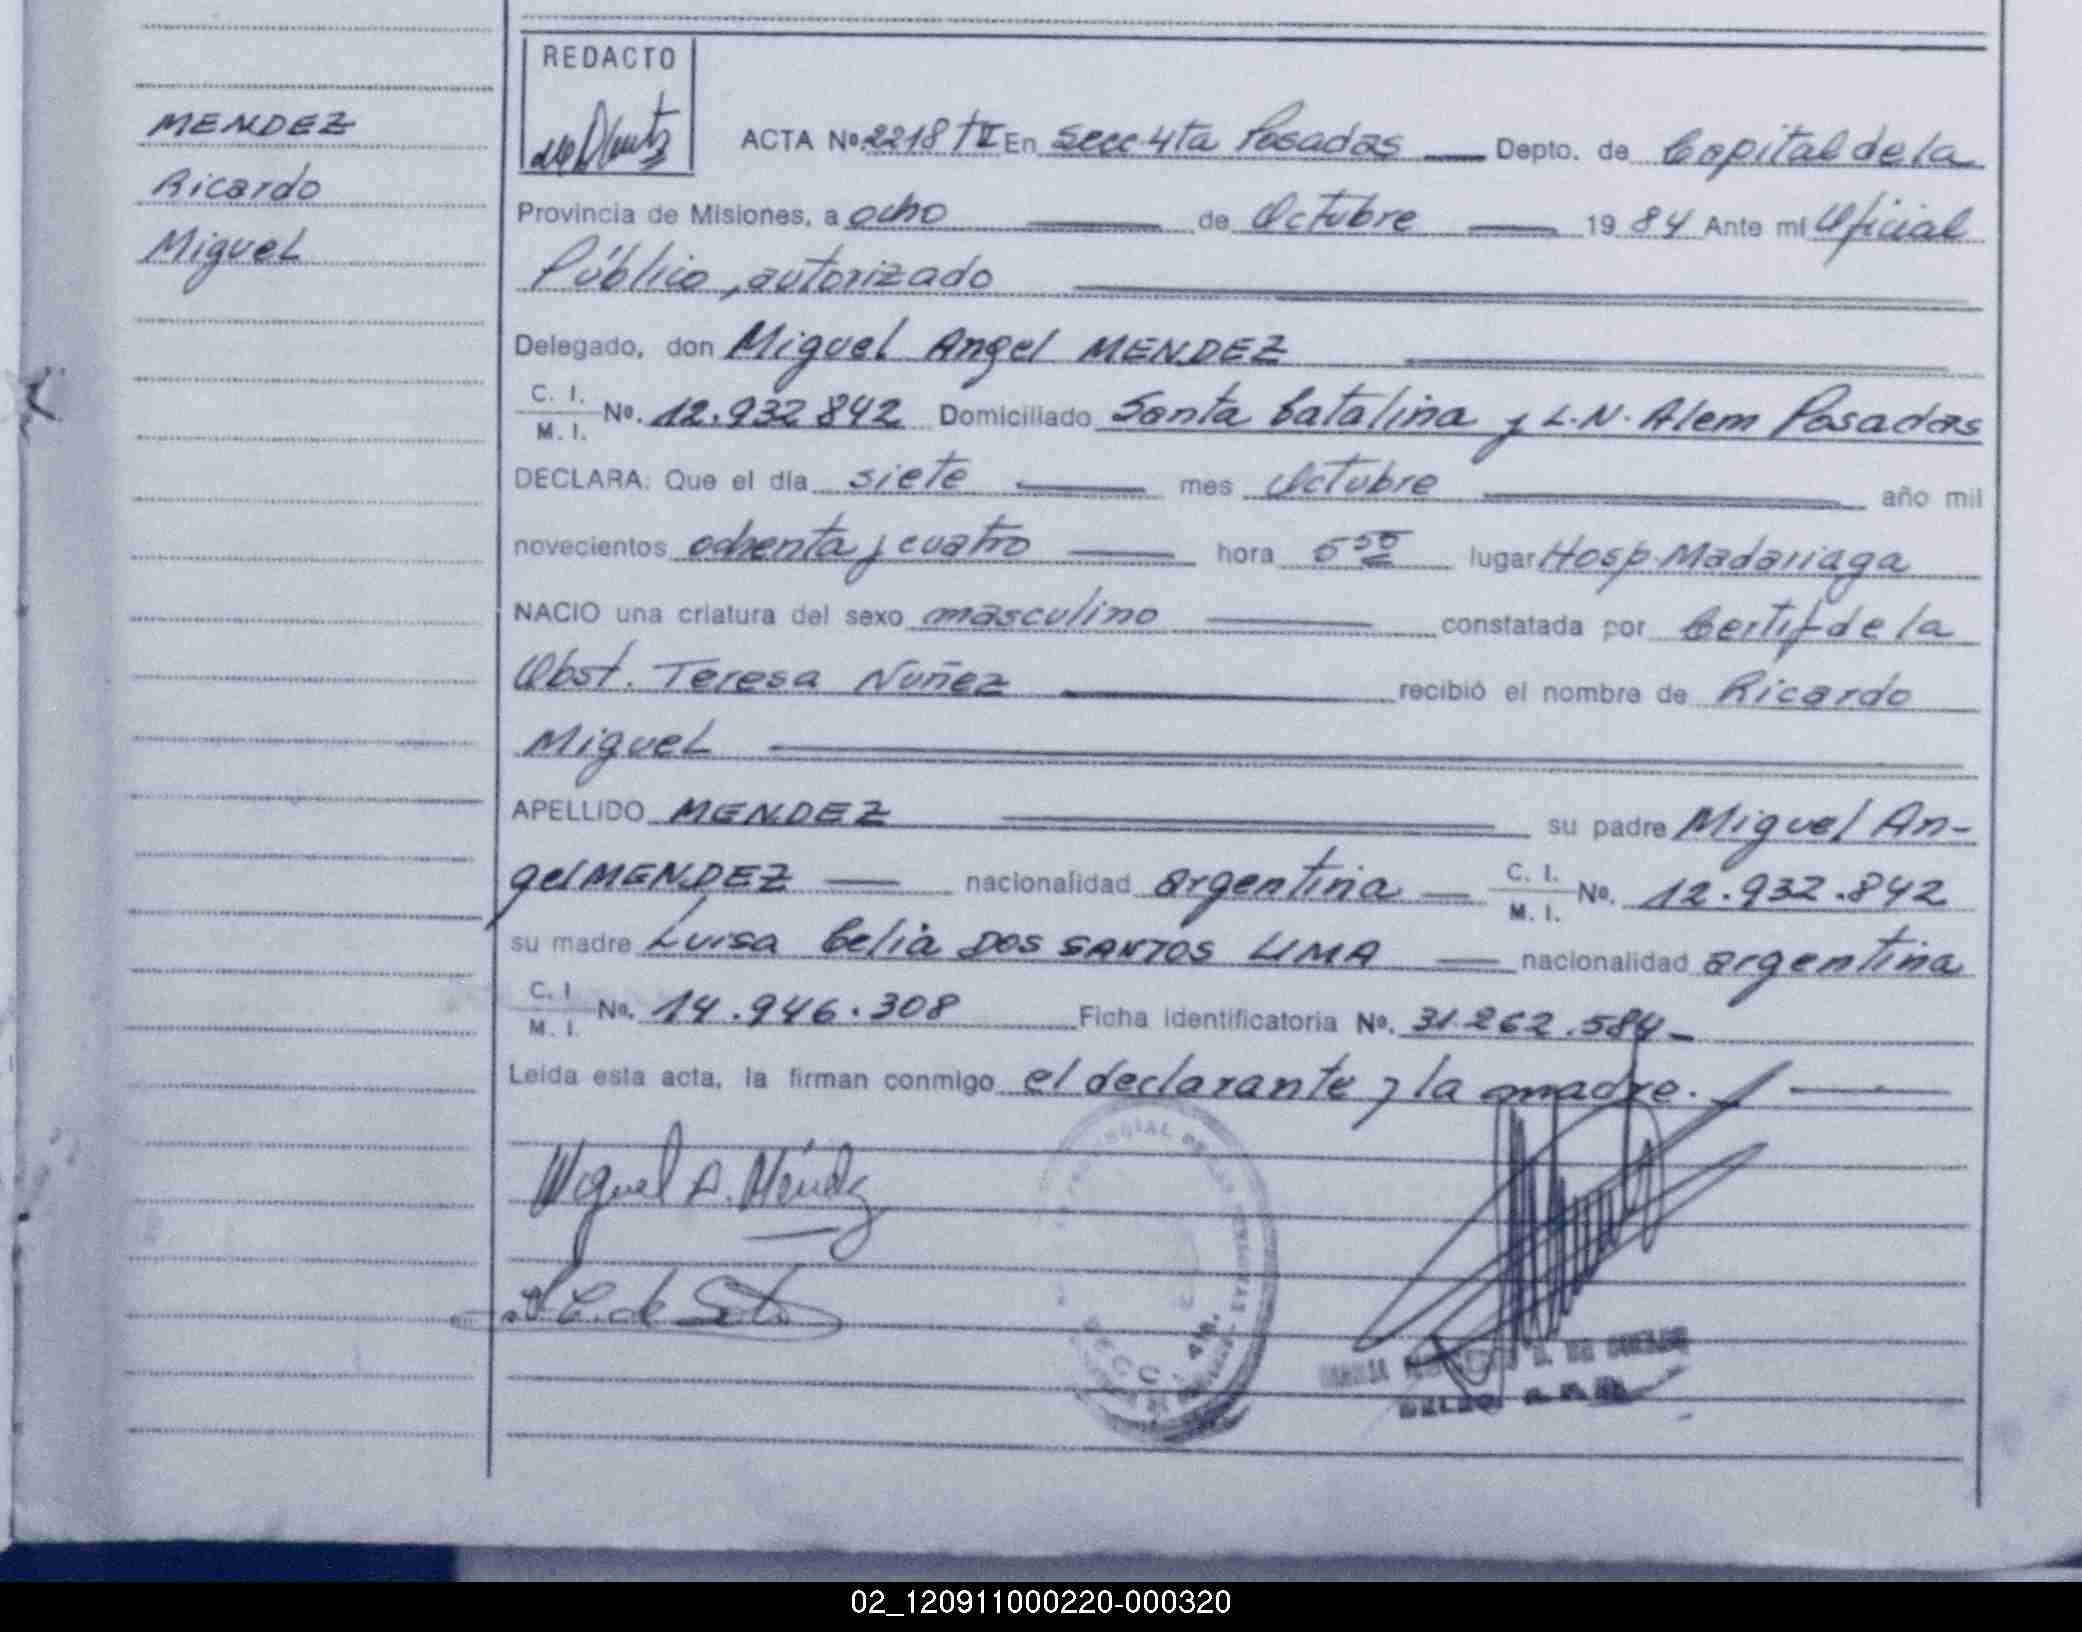 MENDEZ
Ricardo
Miguel
REDACTO
ACTA Nº 2218 TII En Secc 4ta Posadas Depto. de Capital de la
Provincia de Misiones, a ocho de Octubre 19 84 Ante mí Oficial
Público, autorizado
Delegado, don Miguel Angel MENDEZ
C. I.
M. I. Nº. 12.932 842 Domiciliado Santa Catalina y L.N. Alem Posadas
DECLARA: Que el día siete mes Octubre año mil
novecientos ochenta y cuatro hora 5 55 lugar Hosp. Madariaga
NACIO una criatura del sexo masculino constatada por Certif de la
Obst. Teresa Nuñez recibió el nombre de Ricardo
Miguel
APELLIDO MENDEZ su padre Miguel An-
gel MENDEZ nacionalidad argentina C. I.
M. I. Nº. 12.932.842
su madre Luisa Celia DOS SANTOS LIMA nacionalidad argentina
C. I
M. I. Nº. 14.946.308 Ficha identificatoria Nº. 31.262.584
Leída esta acta, la firman conmigo el declarante y la madre.
Miguel A. Méndez
SECC. 4ta.
02_120911000220-000320